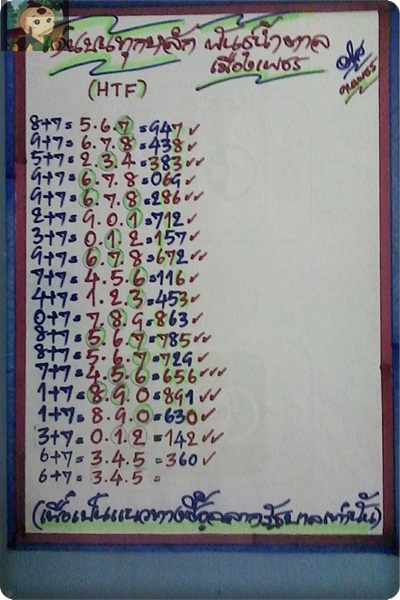 เน้นบนทุกหลัก พันธุ์น้ำตาล
เมืองเพชร
(HTF)
8+7= 5.6.7=947✓
9+7= 6.7.8=438✓
5+7= 2.3.4=383✓✓
9+7= 6.7.8=069✓
9+7= 6.7.8=286✓✓
2+7= 9.0.1=712✓
3+7= 0.1.2=157✓
9+7= 6.7.8=672✓✓
7+7= 4.5.6=116✓
4+7= 1.2.3=453✓
0+7= 7.8.9=863✓
8+7= 5.6.7=785✓✓
8+7= 5.6.7=729✓
7+7= 4.5.6=656✓✓✓
1+7= 8.9.0=891✓✓
1+7= 8.9.0=630✓
3+7= 0.1.2=142✓✓
6+7= 3.4.5=360✓
6+7= 3.4.5=
(เพื่อเป็นแนวทางซื้อสลากรัฐบาลเท่านั้น)